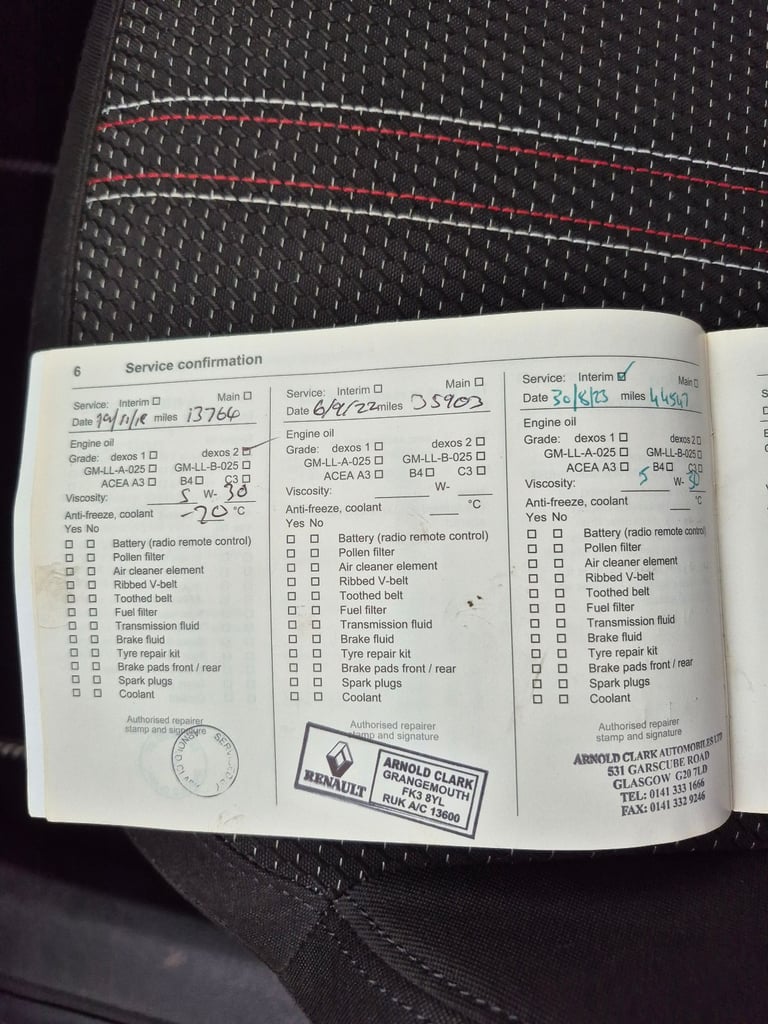 6 Service confirmation
Service: Interim ☐ Main ☐
Date 19/11/18 miles 13764
Engine oil
Grade: dexos 1 ☐ dexos 2 ☑
GM-LL-A-025 ☐ GM-LL-B-025 ☐
ACEA A3 ☐ B4 ☐ C3 ☐
Viscosity: 5 W- 30
Anti-freeze, coolant -20 °C
Yes No
☐ ☐ Battery (radio remote control)
☐ ☐ Pollen filter
☐ ☐ Air cleaner element
☐ ☐ Ribbed V-belt
☐ ☐ Toothed belt
☐ ☐ Fuel filter
☐ ☐ Transmission fluid
☐ ☐ Brake fluid
☐ ☐ Tyre repair kit
☐ ☐ Brake pads front / rear
☐ ☐ Spark plugs
☐ ☐ Coolant
Authorised repairer
stamp and signature
Service: Interim ☐ Main ☐
Date 6/9/22 miles 35903
Engine oil
Grade: dexos 1 ☐ dexos 2 ☐
GM-LL-A-025 ☐ GM-LL-B-025 ☐
ACEA A3 ☐ B4 ☐ C3 ☐
Viscosity: W-
Anti-freeze, coolant °C
Yes No
☐ ☐ Battery (radio remote control)
☐ ☐ Pollen filter
☐ ☐ Air cleaner element
☐ ☐ Ribbed V-belt
☐ ☐ Toothed belt
☐ ☐ Fuel filter
☐ ☐ Transmission fluid
☐ ☐ Brake fluid
☐ ☐ Tyre repair kit
☐ ☐ Brake pads front / rear
☐ ☐ Spark plugs
☐ ☐ Coolant
Authorised repairer
stamp and signature
RENAULT
ARNOLD CLARK
GRANGEMOUTH
FK3 8YL
RUK A/C 13600
Service: Interim ☑ Main ☐
Date 30/8/23 miles 44547
Engine oil
Grade: dexos 1 ☐ dexos 2 ☐
GM-LL-A-025 ☐ GM-LL-B-025 ☐
ACEA A3 ☐ B4 ☐ C3 ☐
Viscosity: 5 W- 30
Anti-freeze, coolant °C
Yes No
☐ ☐ Battery (radio remote control)
☐ ☐ Pollen filter
☐ ☐ Air cleaner element
☐ ☐ Ribbed V-belt
☐ ☐ Toothed belt
☐ ☐ Fuel filter
☐ ☐ Transmission fluid
☐ ☐ Brake fluid
☐ ☐ Tyre repair kit
☐ ☐ Brake pads front / rear
☐ ☐ Spark plugs
☐ ☐ Coolant
Authorised repairer
stamp and signature
ARNOLD CLARK AUTOMOBILES LTD
531 GARSCUBE ROAD
GLASGOW G20 7LD
TEL: 0141 333 1666
FAX: 0141 332 9246